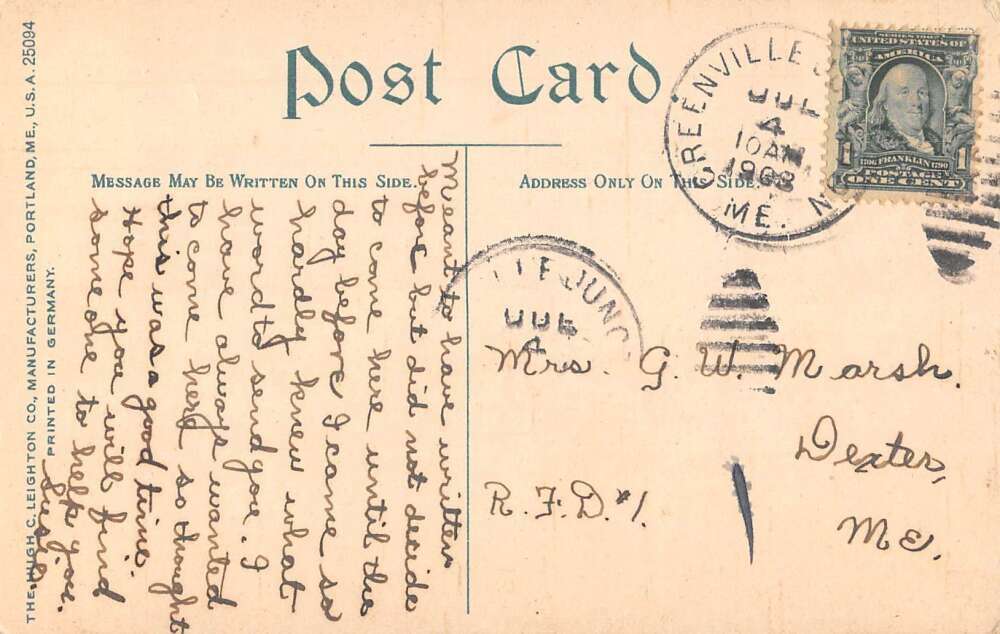 Post Card
MESSAGE MAY BE WRITTEN ON THIS SIDE.
ADDRESS ONLY ON THIS SIDE.
THE HUGH C. LEIGHTON CO., MANUFACTURERS, PORTLAND, ME., U.S.A. 25094
PRINTED IN GERMANY.
GREENVILLE
JUL
4
10 AM
1908
ME.
SERIES 1902
UNITED STATES OF
AMERICA
1706 FRANKLIN 1790
1 1
POSTAGE
ONE CENT
LLE JUNC
JUL
4
Meant to have written
before but did not decide
to come here until the
day before I came so
hardly knew what
word to send you. I
have always wanted
to come here so thought
this was a good time.
Hope you will find
some one to help you.
Mrs. G. W. Marsh.
Dexter,
R.F.D. #1.
Me.